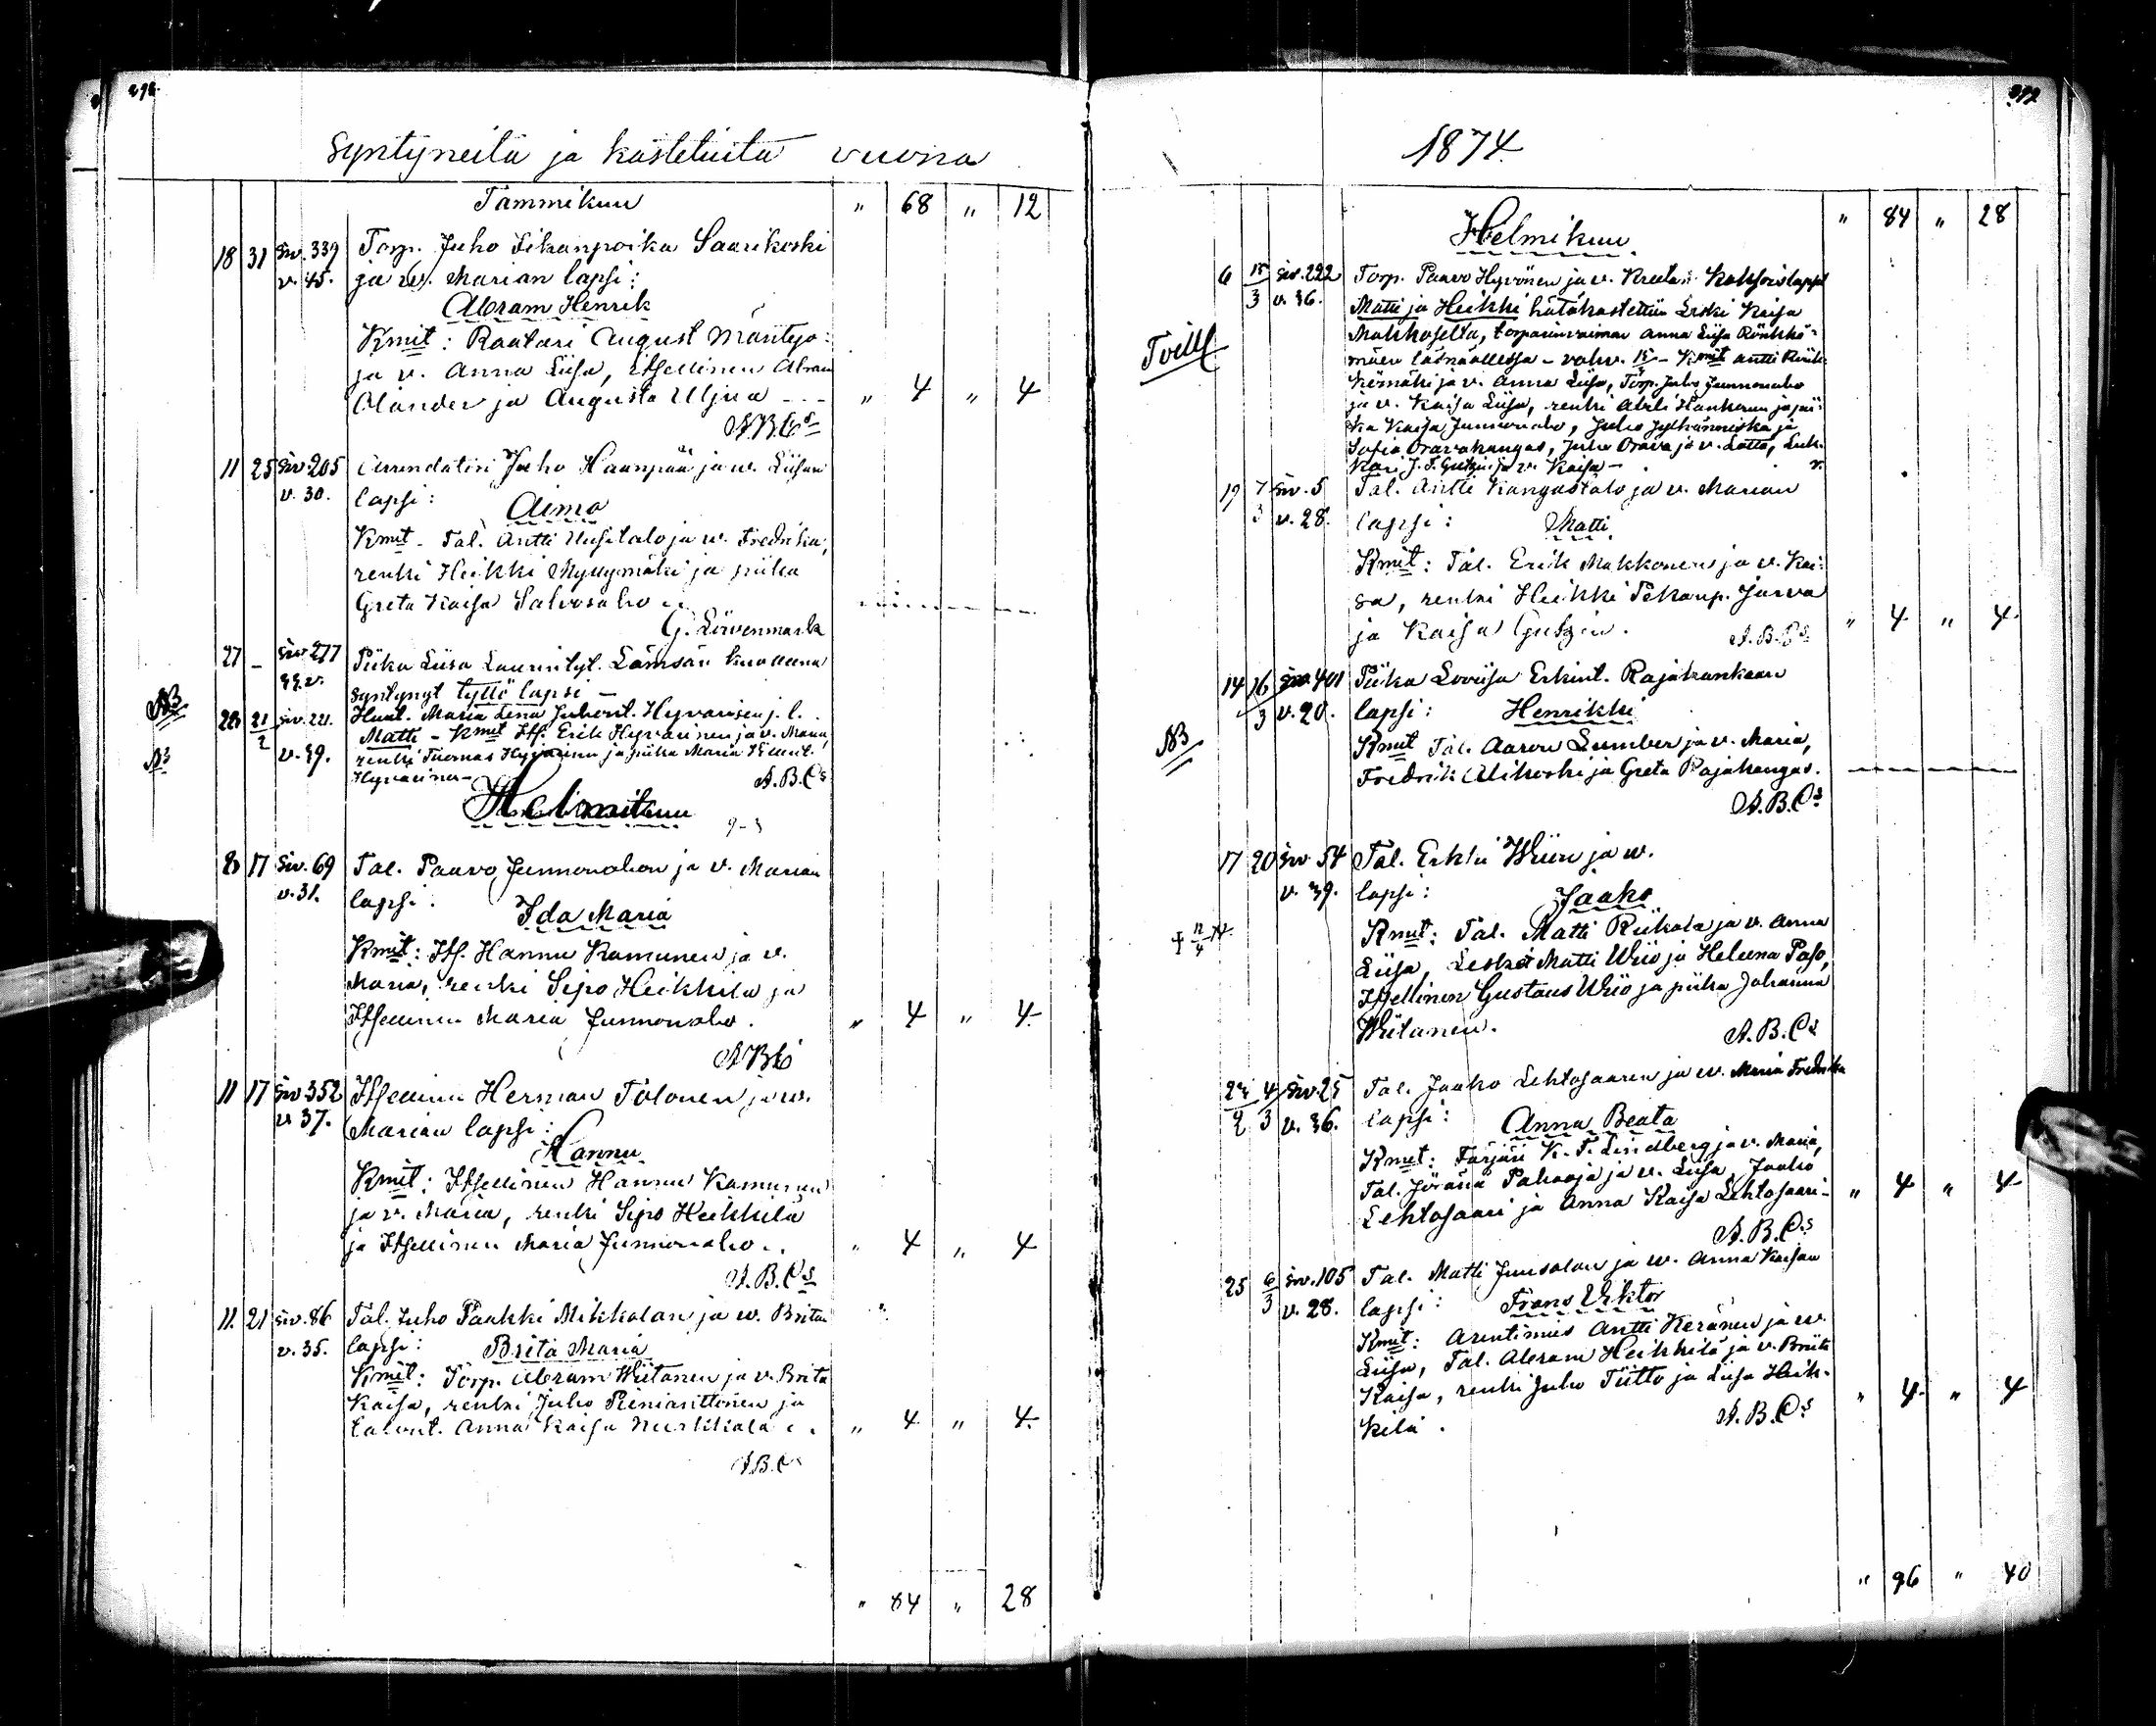 Syntyneitä ja kastetuita vuona
Tammikuu " 68 " 12
18 31 Siv. 339 Torp. Juho Iikanpoika Saarikoski
v. 45. ja v. Marian lapsi:
Abram Henrik
Kmit: Raatari August Mäntyo:
ja v. Anna Liisa, Itsellinen Abram
Olander ja Augusta Uljua - - - " 4 " 4
A.B.Cs
11 25 Siv. 205 Arrendatori Juho Haanpään ja w. Liisan
v. 30. lapsi: Aimo
Kmit - Tal. Antti Uusitalo ja w. Fredrika,
renki Heikki Myllymäki ja piika
Greta Kaisa Salvosaho
G. Löwenmark
27 - Siv 277 Piika Liisa Lauritytt. Lämsän kuolluna
syntynyt tyttö lapsi -
NB 28 21/2 Siv. 221. Huut. Maria Lena Juhont. Hyvärisen j. l.
Matti - Kmit Its. Erik Hyvärinen ja v. Maria,
NB v. 39. renki Tuomas Hyvärinen ja piika Maria
Hyvärinen - A.B.Cs
Helmikuu
8 17 Siv. 69 Tal. Paavo Junnonahon ja v. Marian
v. 31. lapsi: Ida Maria
Kmit: Its. Hannu Kamunen ja v.
Maria, renki Sipo Heikkilä ja
Itsellinen Maria Junnonaho. " 4 " 4
A.B.Cs
11 17 Siv 352 Itsellinen Herman Tolonen ja w.
v 37. Marian lapsi:
Hannu
Kmit: Itsellinen Hannu Kamunen
ja v. Maria, renki Sipo Heikkilä
ja Itsellinen Maria Junnonaho.. " 4 " 4
A.B.Cs
11. 21 Siv. 86 Tal. Juho Paakki Mikkolan ja w. Britan
v. 35. lapsi: Brita Maria
Kmit: Torp. Abram Wiitanen ja v. Brita
Kaisa, renki Juho ja
talont. Anna Kaisa " 4 " 4
A.B.Cs
" 84 " 28
1874.
Helmikuu " 84 " 28
6 15/3 Siv. 222 Torp. Paavo Hyvönen ja v. Kreeta: Kaksoislapset
v. 36. Matti ja Heikki hätäkastettiin Leski Kaisa
Makkoselta, torparinvaimon Anna Liisa Rönkkö-
mäen läsnäollessa - vahv. 15/3 - Kmit Antti Rönk-
kömäki ja v. Anna Liisa, Torp. Juho Junnonaho
ja v. Kaisa Liisa, renki Abeli Hankonen ja pii-
ka Kaisa Junnonaho, Juho Jylhänniska ja
Sofia Oravakangas, Juho Orava ja v. Lotta, Luk-
kari J. F. Gutzin ja v. Kaisa -
19 7/3 Siv. 5 Tal. Antti Kangastalo ja v. Marian
v. 28. lapsi: Matti
Kmit: Tal. Erik Makkonen ja v. Kai-
sa, renki Heikki Pekanp. Jurva
ja Kaisa Gutzin. A.B.Cs " 4 " 4
14 16/3 Siv. 401 Piika Loviisa Erkint. Rajakankaan
v. 20. lapsi: Henrikki
NB Kmit Tal. Aaron Lumber ja v. Maria,
Fredrik Alikoski ja Greta Rajakangas.
A.B.Cs
17 20 Siv 54 Tal. Erkki Wiion ja w.
v. 39. lapsi: Jaako
† 12/4 Kmit: Tal. Matti Riikola ja v. Anna
Liisa, Leskei Matti Wiio ja Heleena Paso,
Itsellinen Gustaus Wiio ja piika Johanna
Wiitanen. A.B.Cs
23/2 4/3 Siv. 25 Tal. Jaako Lehtosaaren ja w. Maria Fredrika
v. 36. lapsi: Anna Beata
Kmit: Färjäri K. F. Lindberg ja v. Maria,
Tal. Jörana Pahaoja ja v. Liisa, Jaako
Lehtosaari ja Anna Kaisa Lehtosaari - " 4 " 4
A.B.Cs
25 6/3 Siv. 105 Tal. Matti Juusolan ja w. Anna Kaisan
v. 28. lapsi: Frans Viktor
Kmit: Arentimies Antti Keränen ja w.
Liisa, Tal. Abram Heikkilä ja v. Briita
Kaisa, renki Juho Tiitto ja Liisa Heik-
kilä. A.B.Cs " 4 " 4
" 96 " 40